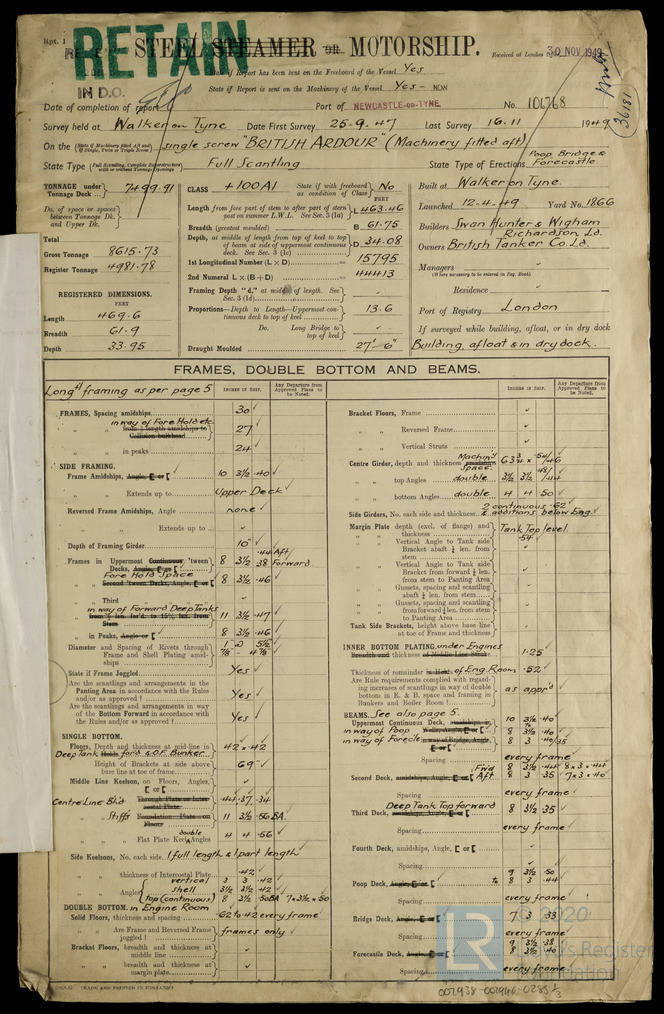 Rpt. 1
RETAIN
IN D.O.
STEEL STEAMER OR MOTORSHIP.
Received at London 30 NOV 1949
State if Report has been sent on the Freeboard of the Vessel Yes
State if Report is sent on the Machinery of the Vessel Yes - NON
Date of completion of report
Port of NEWCASTLE-ON-TYNE
No. 106768
Survey held at Walker on Tyne Date First Survey 25-9-47 Last Survey 16.11 1949
(36181)
On the (State if Machinery fitted Aft and if Single, Twin or Triple Screw) single screw "BRITISH ARDOUR" (Machinery fitted aft)
State Type (Full Scantling, Complete Superstructure with or without Tonnage Openings) Full Scantling State Type of Erections Poop, Bridge & Forecastle.
TONNAGE under Tonnage Deck 7499.91
Do. of space or spaces between Tonnage Dk. and Upper Dk.
Total
Gross Tonnage 8615.73
Register Tonnage 4981.78
REGISTERED DIMENSIONS.
FEET
Length 469.6
Breadth 61.9
Depth 33.95
CLASS +100A1 State if with freeboard as condition of Class No
FEET
Length from fore part of stem to after part of stern post on summer L.W.L. See Sec. 3 (1a) L 463.46
Breadth (greatest moulded) B 61.75
Depth, at middle of length from top of keel to top of beam at side of uppermost continuous deck. See Sec. 3 (1c) D 34.08
1st Longitudinal Number (L × D) 15795
2nd Numeral L × (B + D) 44413
Framing Depth "d," at middle of length. See Sec. 3 (1d)
Proportions—Depth to Length—Uppermost continuous deck to top of keel 13.6
Do. Long Bridge to top of keel
Draught Moulded 27'-6"
Built at Walker on Tyne
Launched 12-4-49 Yard No. 1866
Builders Swan Hunter & Wigham Richardson, Ld.
Owners British Tanker Co. Ld.
Managers
(Where necessary to be entered in Reg. Book)
Residence
Port of Registry London
If surveyed while building, afloat, or in dry dock
Building, afloat & in dry dock.
FRAMES, DOUBLE BOTTOM AND BEAMS.
Longl framing as per page 5
INCHES IN SHIP.
Any Departure from Approved Plans to be Noted.
FRAMES, Spacing amidships 30
in way of Fore Hold etc.
" " from ⅕ length amidships to Collision bulkhead 27
" " in peaks 24
SIDE FRAMING.
Frame Amidships, Angle, E or [ 10 3½ .40
" " Extends up to Upper Deck
Reversed Frame Amidships, Angle none
" " Extends up to
Depth of Framing Girder 10"
Frames in Uppermost Continuous 'tween Decks, Angle, E or [ 8 3½ .44 Aft .38 Forward
Fore Hold Space
" " Second 'tween Decks, Angle, E or [ 8 3½ .46
" " Third
in way of Forward Deep Tanks
11 3½ .47
" " in Peaks, Angle or [ 8 3½ .46
Diameter and Spacing of Rivets through Frame and Shell Plating amidships
State if Frame Joggled Yes
Are the scantlings and arrangements in the Panting Area in accordance with the Rules and/or as approved? Yes
Are the scantlings and arrangements in way of the Bottom Forward in accordance with the Rules and/or as approved? Yes
SINGLE BOTTOM.
Floors, Depth and thickness at mid-line in Deep Tank Holds for'd & O.F. Bunker 42 × .42
Height of Brackets at side above base line at toe of frame 69
Middle Line Keelson, on Floors, Angles, E or [
Centre Line Bhd Through Plate or Intercostal Plate .44 .37 .34
" Stiffs Foundation Plate on Floors 11 3½ .56 BA
" " Flat Plate Keel Angles double 4 4 .56
Side Keelsons, No. each side 1 full length & 1 part length
" " thickness of Intercostal Plate .42
Angles vertical 3 3 .42
shell 3½ 3½ .42
(top (continuous) 8 3½ .50 BA 7×3½×.50
DOUBLE BOTTOM. in Engine Room
Solid Floors, thickness and spacing .62 to .42 every frame
" " Are Frame and Reversed Frame joggled? frames only
Bracket Floors, breadth and thickness at middle line
" " breadth and thickness at margin plate
INCHES IN SHIP.
Any Departure from Approved Plans to be Noted.
Bracket Floors, Frame
" " Reversed Frame
" " Vertical Struts
Centre Girder, depth and thickness Machiny Space
" " top Angles double
" " bottom Angles double 4 4 .50
Side Girders, No. each side and thickness 2 continuous .62 & additions below Eng.
Margin Plate depth (excl. of flange) and thickness Tank Top level .54
" " Vertical Angle to Tank side Bracket abaft ¼ len. from stem
" " Vertical Angle to Tank side Bracket from forward ¼ len. from stem to Panting Area
" " Gussets, spacing and scantling abaft ¼ len. from stem
" " Gussets, spacing and scantling from forward ¼ len. from stem to Panting Area
Tank Side Brackets, height above base line at toe of Frame and thickness
INNER BOTTOM PLATING, under Engines
Breadth and thickness of Middle Line Strake 1.25
Thickness of remainder in Hold, of Eng. Room .52
Are Rule requirements complied with regarding increases of scantlings in way of double bottom in E. & B. space and framing in Bunkers and Boiler Room? as app'd
BEAMS. See also page 5.
Uppermost Continuous Deck, amidships 10 3½ .40
in way of Poop 8 3½ .40
in way of Forecle 8 3 .40/35
Spacing every frame
Second Deck, amidships, Angle, E or [ Fwd 8 3½ .44 8×3×.44
Aft 8 3 .35 7×3×.40
Spacing every frame
Deep Tank Top forward
Third Deck, amidships, Angle, E or [ 8 3½ .35
Spacing every frame
Fourth Deck, amidships, Angle, E or [
Spacing
Poop Deck, Angle, E or [ 9 3½ .50 to 8 3 .44
Spacing every frame
Bridge Deck, Angle, E or [ 7 3 .33
Spacing every frame
Forecastle Deck, Angle, E or [ 9 3½ .38 8 3½ .40
Spacing every frame
© 2020
LR
Lloyd's Register
Foundation
(MADE AND PRINTED IN ENGLAND)
002938-002946-0285 1/3